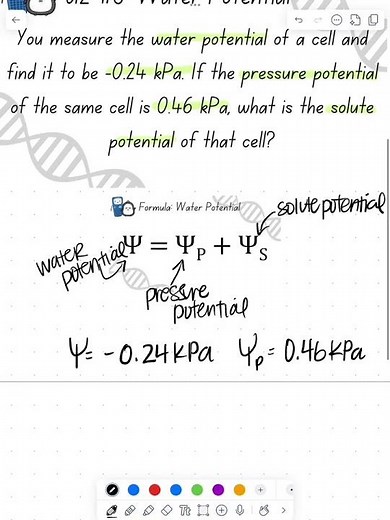 Potential
You measure the water potential of a cell and
find it to be -0.24 kPa. If the pressure potential
of the same cell is 0.46 kPa, what is the solute
potential of that cell?
Formula: Water Potential
solute potential
water
potential
Ψ = Ψ_P + Ψ_S
pressure
potential
Ψ = -0.24 kPa Ψ_P = 0.46 kPa
Tt